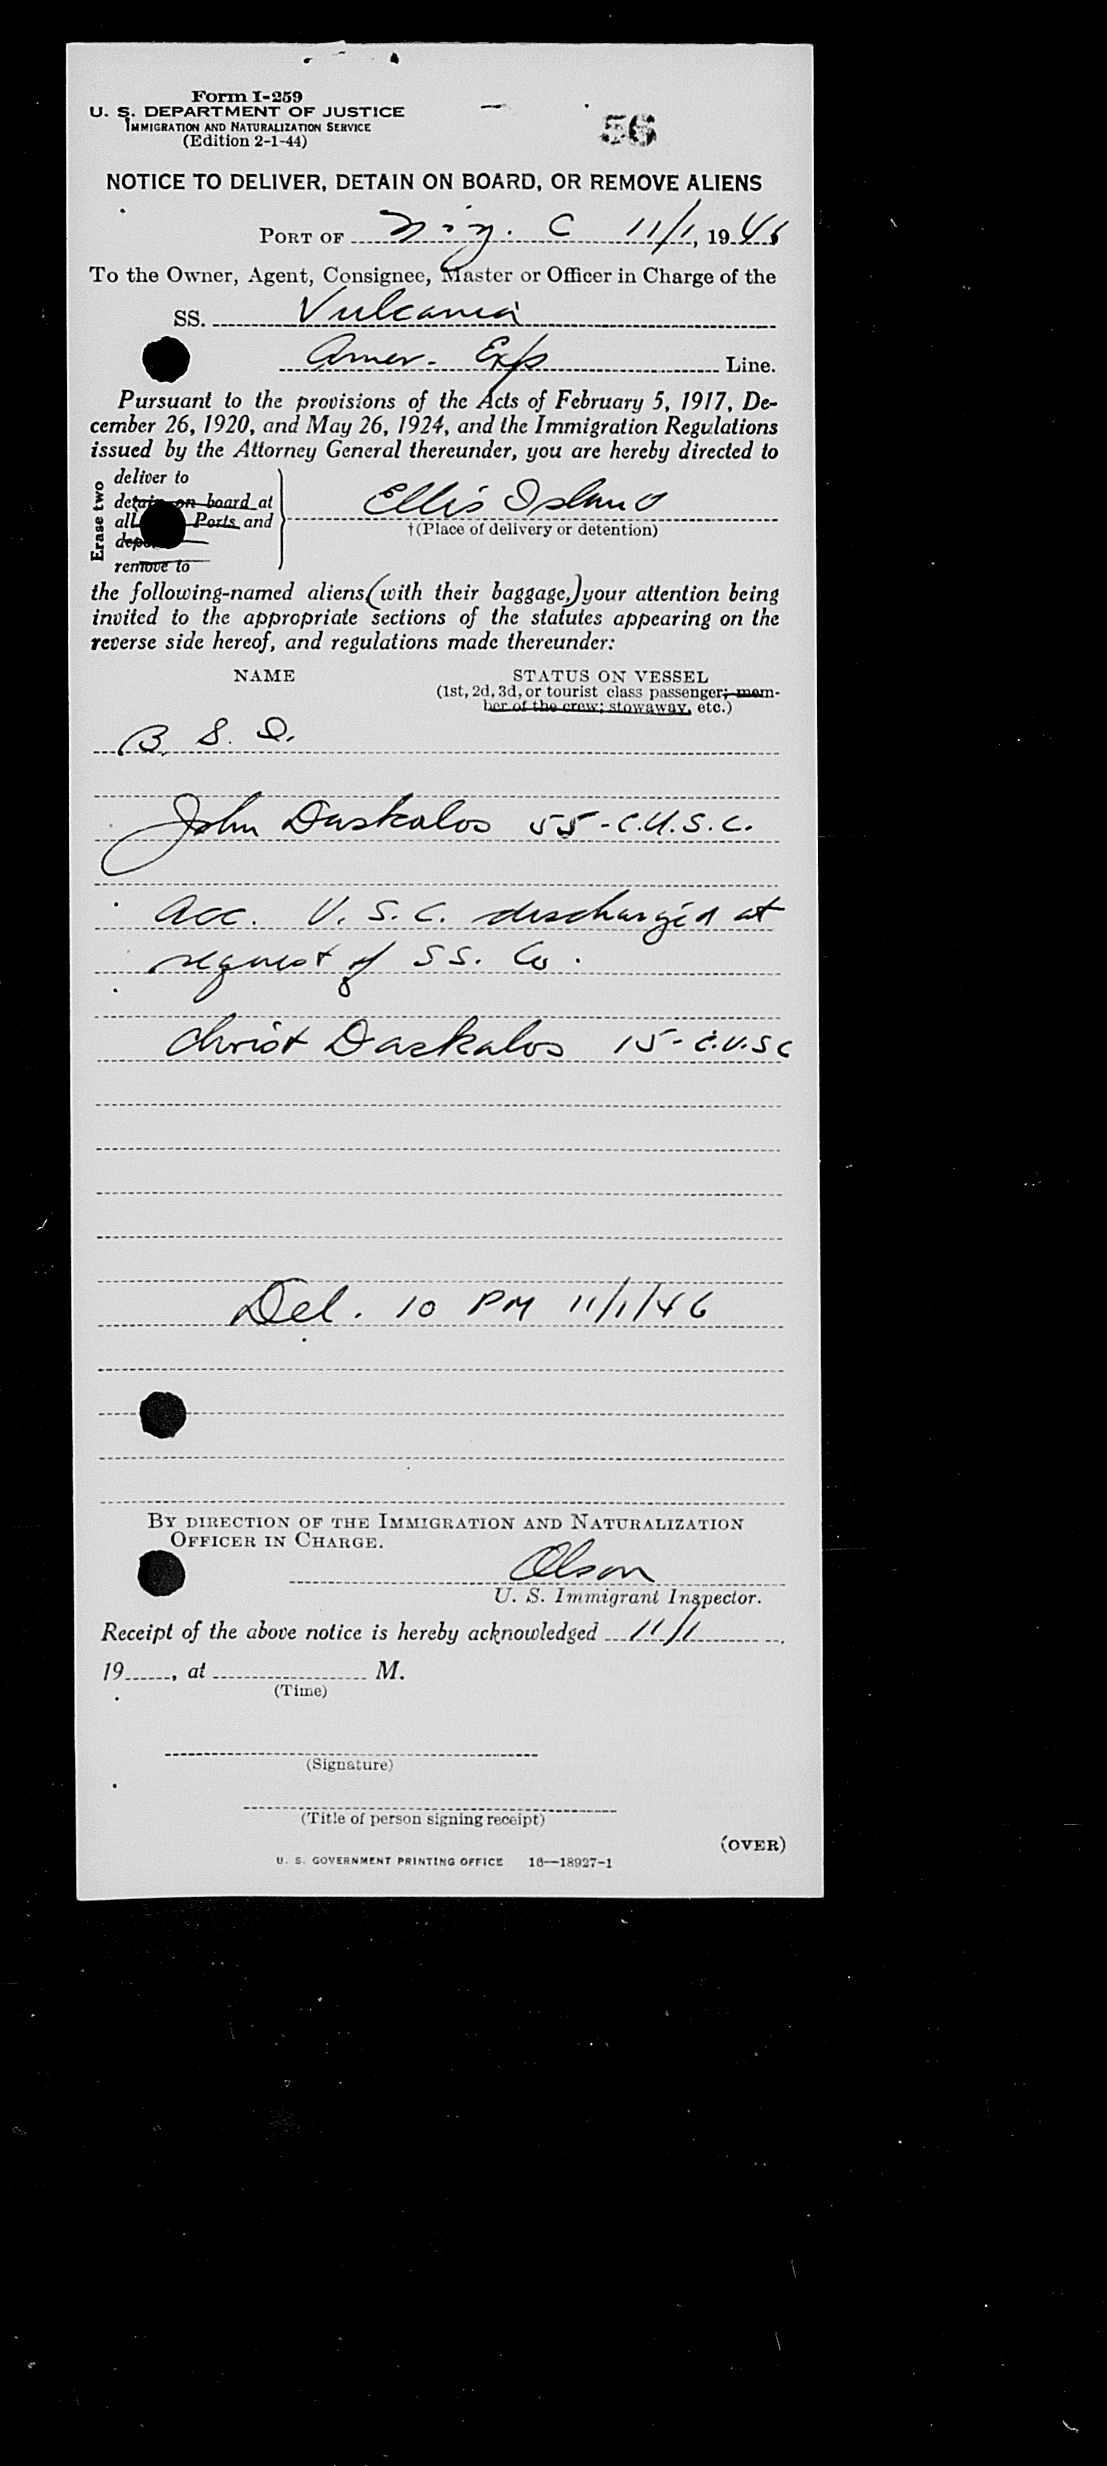 Form I-259
U. S. DEPARTMENT OF JUSTICE
IMMIGRATION AND NATURALIZATION SERVICE
(Edition 2-1-44)
56
NOTICE TO DELIVER, DETAIN ON BOARD, OR REMOVE ALIENS
PORT OF N.Y. C 11/1, 1946
To the Owner, Agent, Consignee, Master or Officer in Charge of the
SS. Vulcania
Amer. Exp Line.
Pursuant to the provisions of the Acts of February 5, 1917, De-
cember 26, 1920, and May 26, 1924, and the Immigration Regulations
issued by the Attorney General thereunder, you are hereby directed to
Erase two
deliver to
detain on board at
all Ports and
remove to
Ellis Island
†(Place of delivery or detention)
the following-named aliens (with their baggage,) your attention being
invited to the appropriate sections of the statutes appearing on the
reverse side hereof, and regulations made thereunder:
NAME STATUS ON VESSEL
(1st, 2d, 3d, or tourist class passenger; mem-
ber of the crew; stowaway, etc.)
B. S. I.
John Daskalos 55-C.U.S.C.
acc. U. S. C. discharged at
request of SS. Co.
Christ Daskalos 15-C.U.S.C
Del. 10 PM 11/1/46
BY DIRECTION OF THE IMMIGRATION AND NATURALIZATION
OFFICER IN CHARGE.
Olson
U. S. Immigrant Inspector.
Receipt of the above notice is hereby acknowledged 11/1
19 , at M.
(Time)
(Signature)
(Title of person signing receipt)
(OVER)
U. S. GOVERNMENT PRINTING OFFICE 16—18927-1